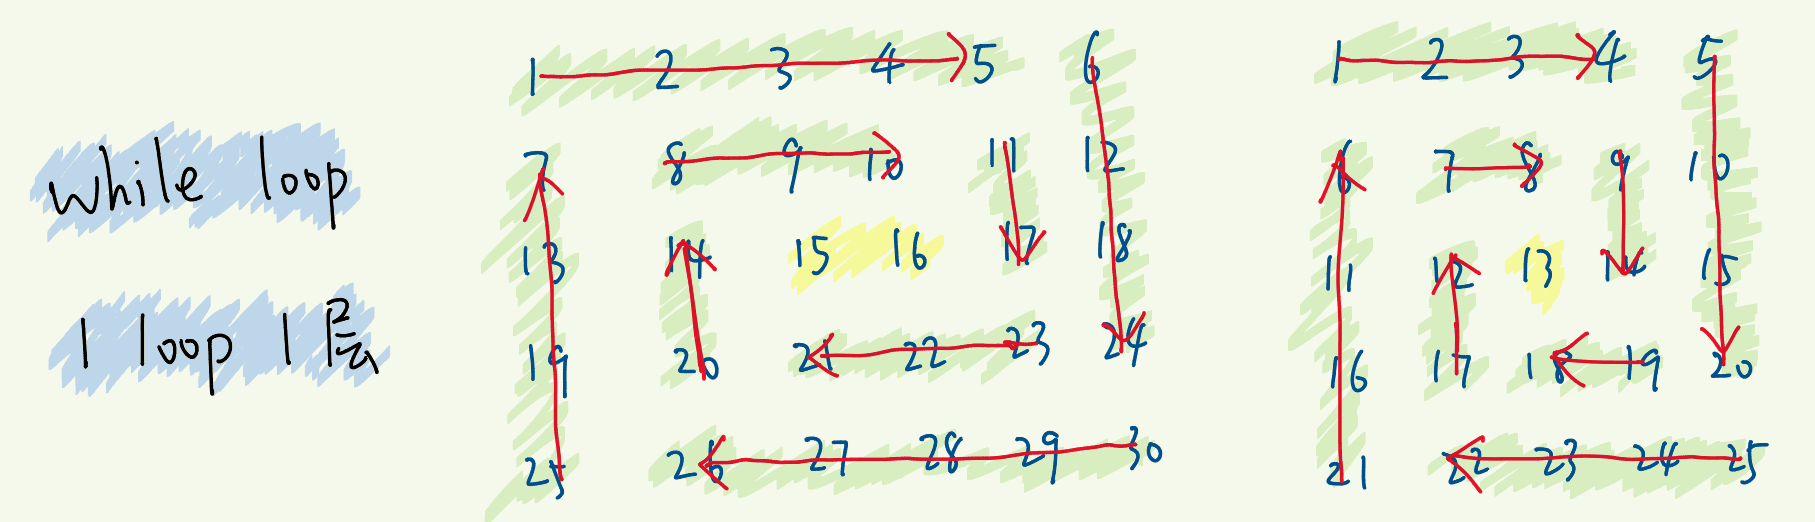 while loop
1 loop 1层
1 2 3 4 5 6
7 8 9 10 11 12
13 14 15 16 17 18
19 20 21 22 23 24
25 26 27 28 29 30
1 2 3 4 5
6 7 8 9 10
11 12 13 14 15
16 17 18 19 20
21 22 23 24 25